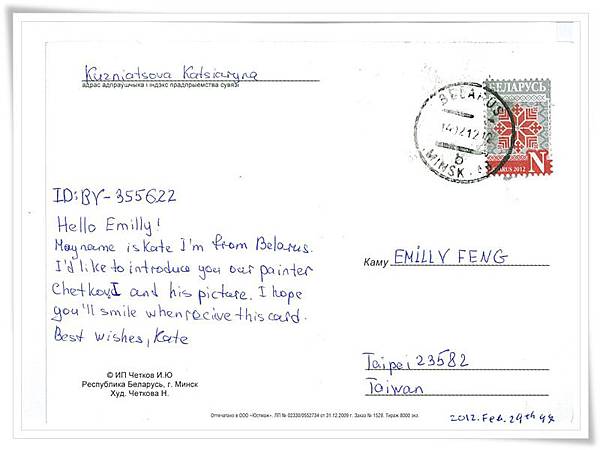 Kuzniatsova Katsiaryna
адрас адпраўшчыка і індэкс прадпрыемства сувязі
БЕЛАРУСЬ
BELARUS
MINSK
N
BELARUS 2012
ID: BY-355622
Hello Emilly!
May name is Kate I'm from Belarus.
I'd like to introduce you our painter
Chetkov I and his picture. I hope
you'll smile when recive this card.
Best wishes, Kate
Каму EMILLY FENG
Taipei 23582
Taiwan
© ИП Четков И.Ю
Республика Беларусь, г. Минск
Худ. Четкова Н.
Отпечатано в ООО «Юстмаж». ЛП № 02330/0552734 от 31.12.2009 г. Заказ № 1528. Тираж 8000 экз.
2012. Feb. 29th